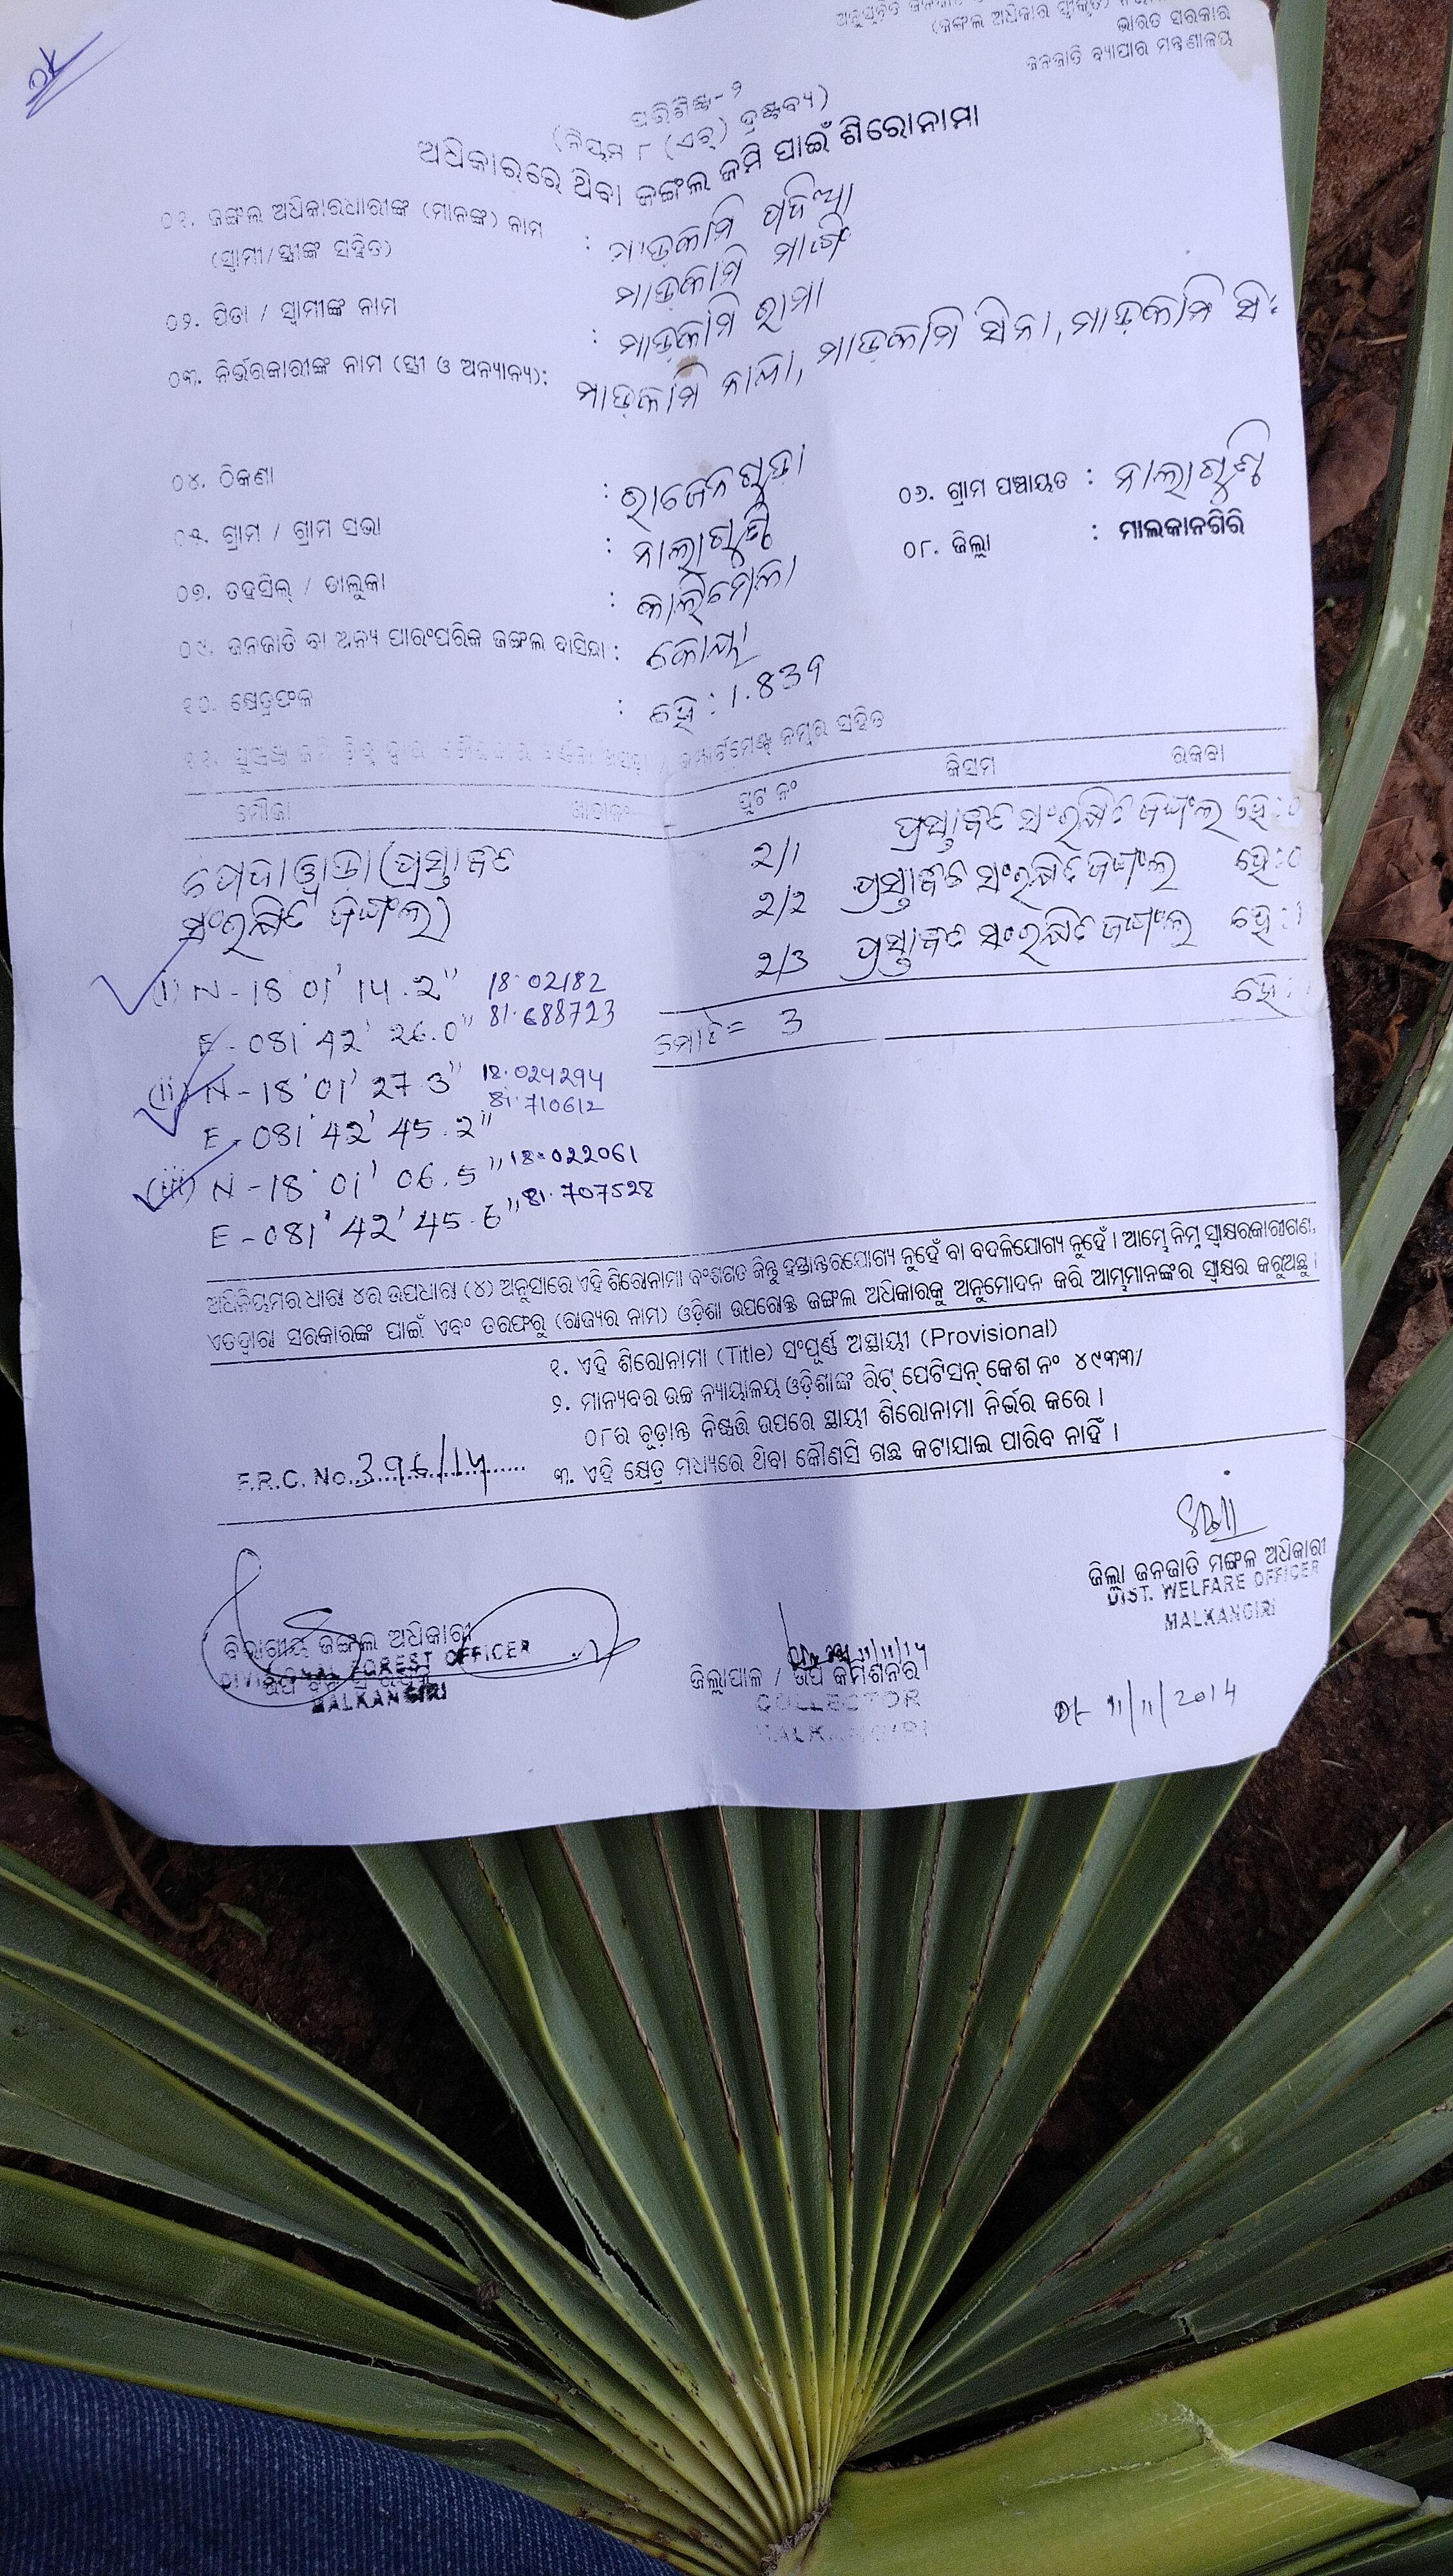 ଭାରତ ସରକାର
ଜନଜାତି ବ୍ୟାପାର ମନ୍ତ୍ରଣାଳୟ
ପରିଶିଷ୍ଟ-୨
(ନିୟମ ୮ (ଏଚ୍) ଦ୍ରଷ୍ଟବ୍ୟ)
ଅଧିକାରରେ ଥିବା ଜଙ୍ଗଲ ଜମି ପାଇଁ ଶିରୋନାମା
୦୧. ଜଙ୍ଗଲ ଅଧିକାରଧାରୀଙ୍କ (ମାନଙ୍କ) ନାମ : ମାଡ଼କାମି ପଦିଆ
(ସ୍ୱାମୀ/ସ୍ତ୍ରୀଙ୍କ ସହିତ) ମାଡ଼କାମି
୦୨. ପିତା / ସ୍ୱାମୀଙ୍କ ନାମ : ମାଡ଼କାମି ରାମା
୦୩. ନିର୍ଭରକାରୀଙ୍କ ନାମ (ସ୍ତ୍ରୀ ଓ ଅନ୍ୟାନ୍ୟ): ମାଡ଼କାମି ମାଡ଼କାମି ମାଡ଼କାମି
୦୪. ଠିକଣା : ରାଜେନଗୁଡ଼ା
୦୫. ଗ୍ରାମ / ଗ୍ରାମ ସଭା : ନାଲାଗୁଣ୍ଠି ୦୬. ଗ୍ରାମ ପଞ୍ଚାୟତ : ନାଲାଗୁଣ୍ଠି
୦୭. ତହସିଲ୍ / ତାଲୁକା : କାଲିମେଳା ୦୮. ଜିଲ୍ଲା : ମାଲକାନଗିରି
୦୯. ଜନଜାତି ବା ଅନ୍ୟ ପାରଂପରିକ ଜଙ୍ଗଲ ବାସିନ୍ଦା : କୋୟା
୧୦. କ୍ଷେତ୍ରଫଳ : ହେ :
କମ୍ପାର୍ଟମେଣ୍ଟ ନମ୍ବର ସହିତ
ମୌଜା ଖାତା ନଂ ପ୍ଲଟ ନଂ କିସମ ରକବା
(ପ୍ରସ୍ତାବିତ 2/1 ପ୍ରସ୍ତାବିତ ସଂରକ୍ଷିତ ଜଙ୍ଗଲ ହେ:
ସଂରକ୍ଷିତ ଜଙ୍ଗଲ) 2/2 ପ୍ରସ୍ତାବିତ ସଂରକ୍ଷିତ ଜଙ୍ଗଲ ହେ:
2/3 ପ୍ରସ୍ତାବିତ ସଂରକ୍ଷିତ ଜଙ୍ଗଲ ହେ:
(i) N - 18° 01' 14.2" 18.02182
E - 081° 42' 26.0" 81.688723
ମୋଟ = 3 ହେ:
(ii) N - 18° 01' 27.3" 18.024294
E - 081° 42' 45.2" 81.710612
(iii) N - 18° 01' 06.5" 18.022061
E - 081° 42' 45.6" 81.707528
ଅଧିନିୟମର ଧାରା ୪ର ଉପଧାରା (୪) ଅନୁସାରେ ଏହି ଶିରୋନାମା ବଂଶଗତ କିନ୍ତୁ ହସ୍ତାନ୍ତରଯୋଗ୍ୟ ନୁହେଁ ବା ବଦଳିଯୋଗ୍ୟ ନୁହେଁ । ଆମ୍ଭେ ନିମ୍ନ ସ୍ୱାକ୍ଷରକାରୀଗଣ,
ଏତଦ୍ଦ୍ୱାରା ସରକାରଙ୍କ ପାଇଁ ଏବଂ ତରଫରୁ (ରାଜ୍ୟର ନାମ) ଓଡ଼ିଶା ଉପରୋକ୍ତ ଜଙ୍ଗଲ ଅଧିକାରକୁ ଅନୁମୋଦନ କରି ଆମ୍ଭମାନଙ୍କର ସ୍ୱାକ୍ଷର କରୁଅଛୁ ।
୧. ଏହି ଶିରୋନାମା (Title) ସଂପୂର୍ଣ୍ଣ ଅସ୍ଥାୟୀ (Provisional)
୨. ମାନ୍ୟବର ଉଚ୍ଚ ନ୍ୟାୟାଳୟ ଓଡ଼ିଶାଙ୍କ ରିଟ୍ ପେଟିସନ୍ କେଶ ନଂ ୪୯୩୩/
୦୮ର ଚୂଡ଼ାନ୍ତ ନିଷ୍ପତ୍ତି ଉପରେ ସ୍ଥାୟୀ ଶିରୋନାମା ନିର୍ଭର କରେ ।
F.R.C. No. 396/14 ୩. ଏହି କ୍ଷେତ୍ର ମଧ୍ୟରେ ଥିବା କୌଣସି ଗଛ କଟାଯାଇ ପାରିବ ନାହିଁ ।
ଜିଲ୍ଲା ଜନଜାତି ମଙ୍ଗଳ ଅଧିକାରୀ
DIST. WELFARE OFFICER
MALKANGIRI
ବିଭାଗୀୟ ଜଙ୍ଗଲ ଅଧିକାରୀ
DIVISIONAL FOREST OFFICER
MALKANGIRI
11/11/14
ଜିଲ୍ଲାପାଳ / ଉପ କମିଶନର
COLLECTOR
MALKANGIRI
Dt- 11/11/2014